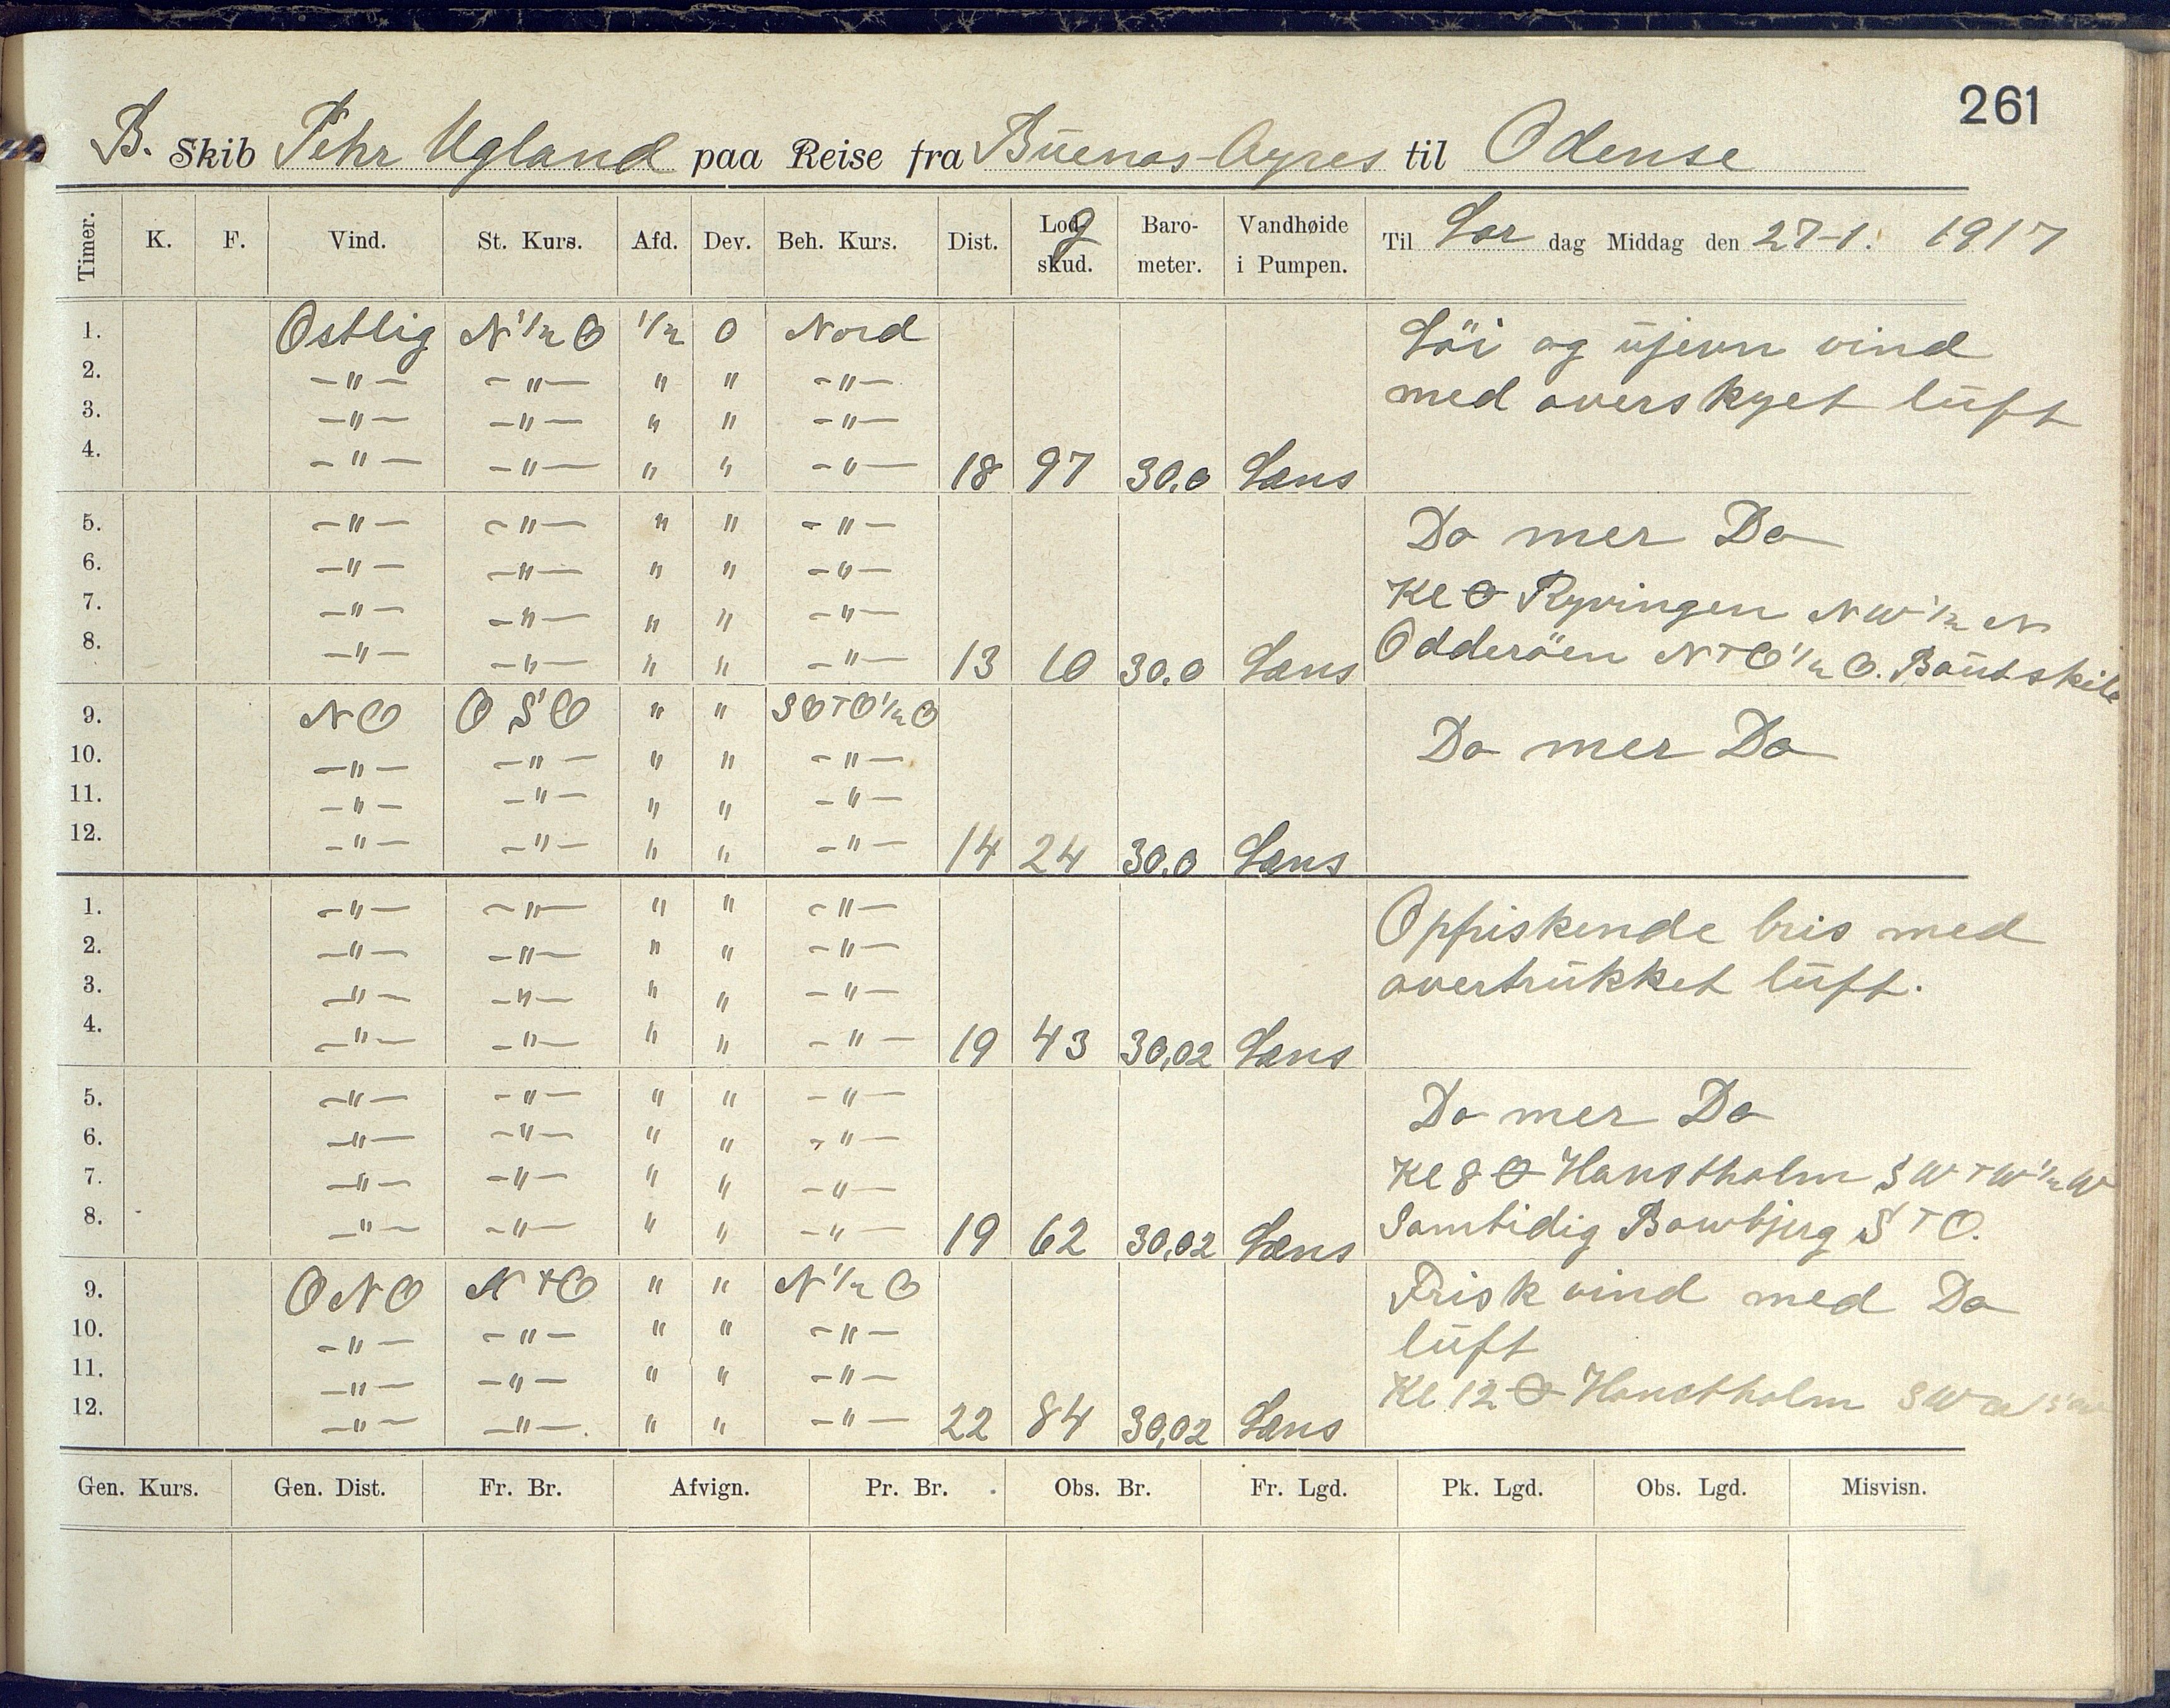 261
B. Skib Pehr Ugland paa Reise fra Buenos-Ayres til Odense
Timer. K. F. Vind. St. Kurs. Afd. Dev. Beh. Kurs. Dist. Log skud. Baro- meter. Vandhøide i Pumpen. Til Lør dag Middag den 27-1. 1917
1. Ostlig N 1/2 O 1/2 0 Nord Löi og ujevn vind
2. -"- -"- " " -"- med overskyet luft
3. -"- -"- " " -"-
4. -"- -"- " " -"- 18 97 30.0 Læns
5. -"- -"- " " -"- Do mer Do
6. -"- -"- " " -"- Kl Ryvingen NW 1/2 N
7. -"- -"- " " -"- Odderöen NTO 1/2 O.
8. -"- -"- " " -"- 13 10 30.0 Læns
9. NO OSO " " SOTO 1/2 O Do mer Do
10. -"- -"- " " -"-
11. -"- -"- " " -"-
12. -"- -"- " " -"- 14 24 30.0 Læns
1. -"- -"- " " -"- Opfriskende bris med
2. -"- -"- " " -"- overtrukket luft.
3. -"- -"- " " -"-
4. -"- -"- " " -"- 19 43 30,02 Læns
5. -"- -"- " " -"- Do mer Do
6. -"- -"- " " -"- Kl 8 Hanstholm SWTW 1/2 W
7. -"- -"- " " -"- Samtidig Bowbjerg STO.
8. -"- -"- " " -"- 19 62 30,02 Læns
9. ONO NTO " " N 1/2 O Frisk vind med Do
10. -"- -"- " " -"- luft
11. -"- -"- " " -"- Kl 12 Hanstholm
12. -"- -"- " " -"- 22 84 30,02 Læns
Gen. Kurs. Gen. Dist. Fr. Br. Afvign. Pr. Br. Obs. Br. Fr. Lgd. Pk. Lgd. Obs. Lgd. Misvisn.